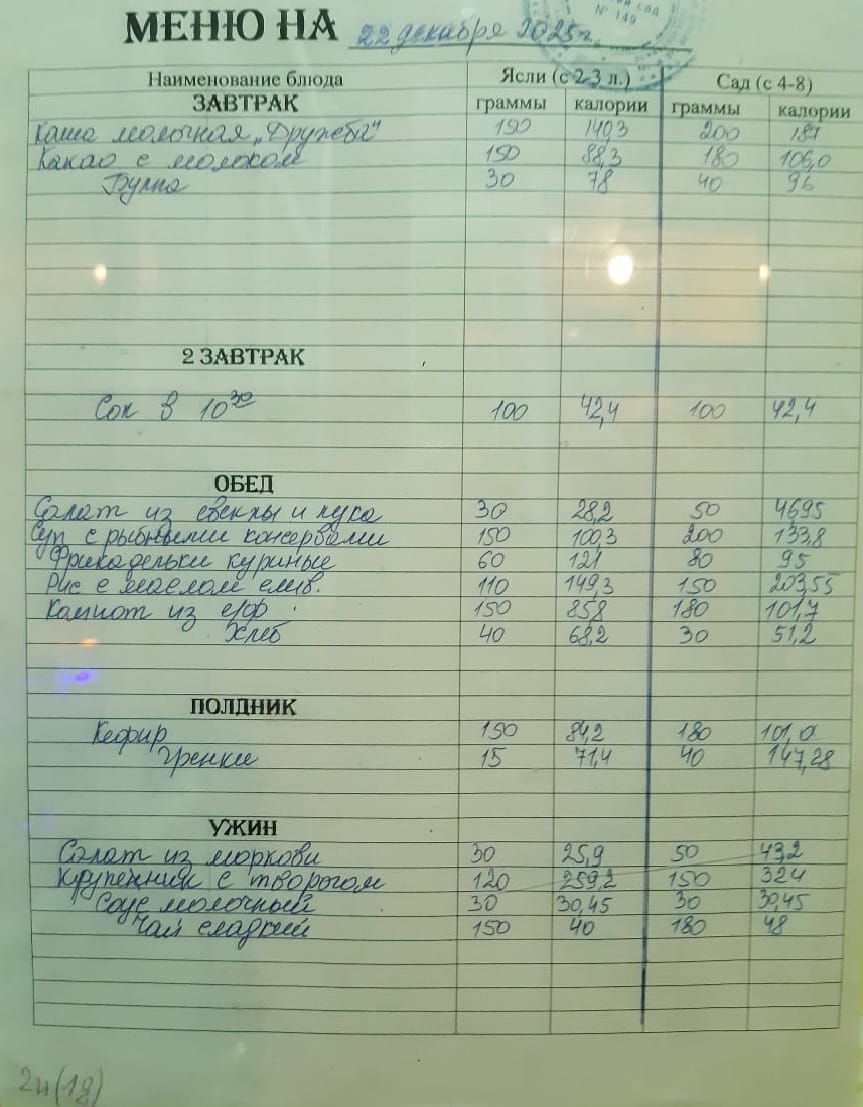 МЕНЮ НА 22 декабря 2025г.
сад
№ 149
Наименование блюда Ясли (с 2-3 л.) Сад (с 4-8)
ЗАВТРАК граммы калории граммы калории
Каша молочная „Дружба" 150 140,3 200 187
Какао с молоком 150 88,3 180 106,0
Булка 30 78 40 96
2 ЗАВТРАК
Сок в 10³⁰ 100 42,4 100 42,4
ОБЕД
Салат из свеклы и лука 30 28,2 50 46,95
Суп с рыбными консервами 150 100,3 200 133,8
Фрикадельки куриные 60 121 80 95
Рис с маслом слив. 110 149,3 150 203,55
Компот из с/ф 150 85,8 180 101,7
Хлеб 40 68,2 30 51,2
ПОЛДНИК
Кефир 150 84,2 180 101,0
Гренки 15 71,4 40 147,28
УЖИН
Салат из моркови 30 25,9 50 43,2
Крупенник с творогом 120 259,2 150 324
Соус молочный 30 30,45 30 30,45
Чай сладкий 150 40 180 48